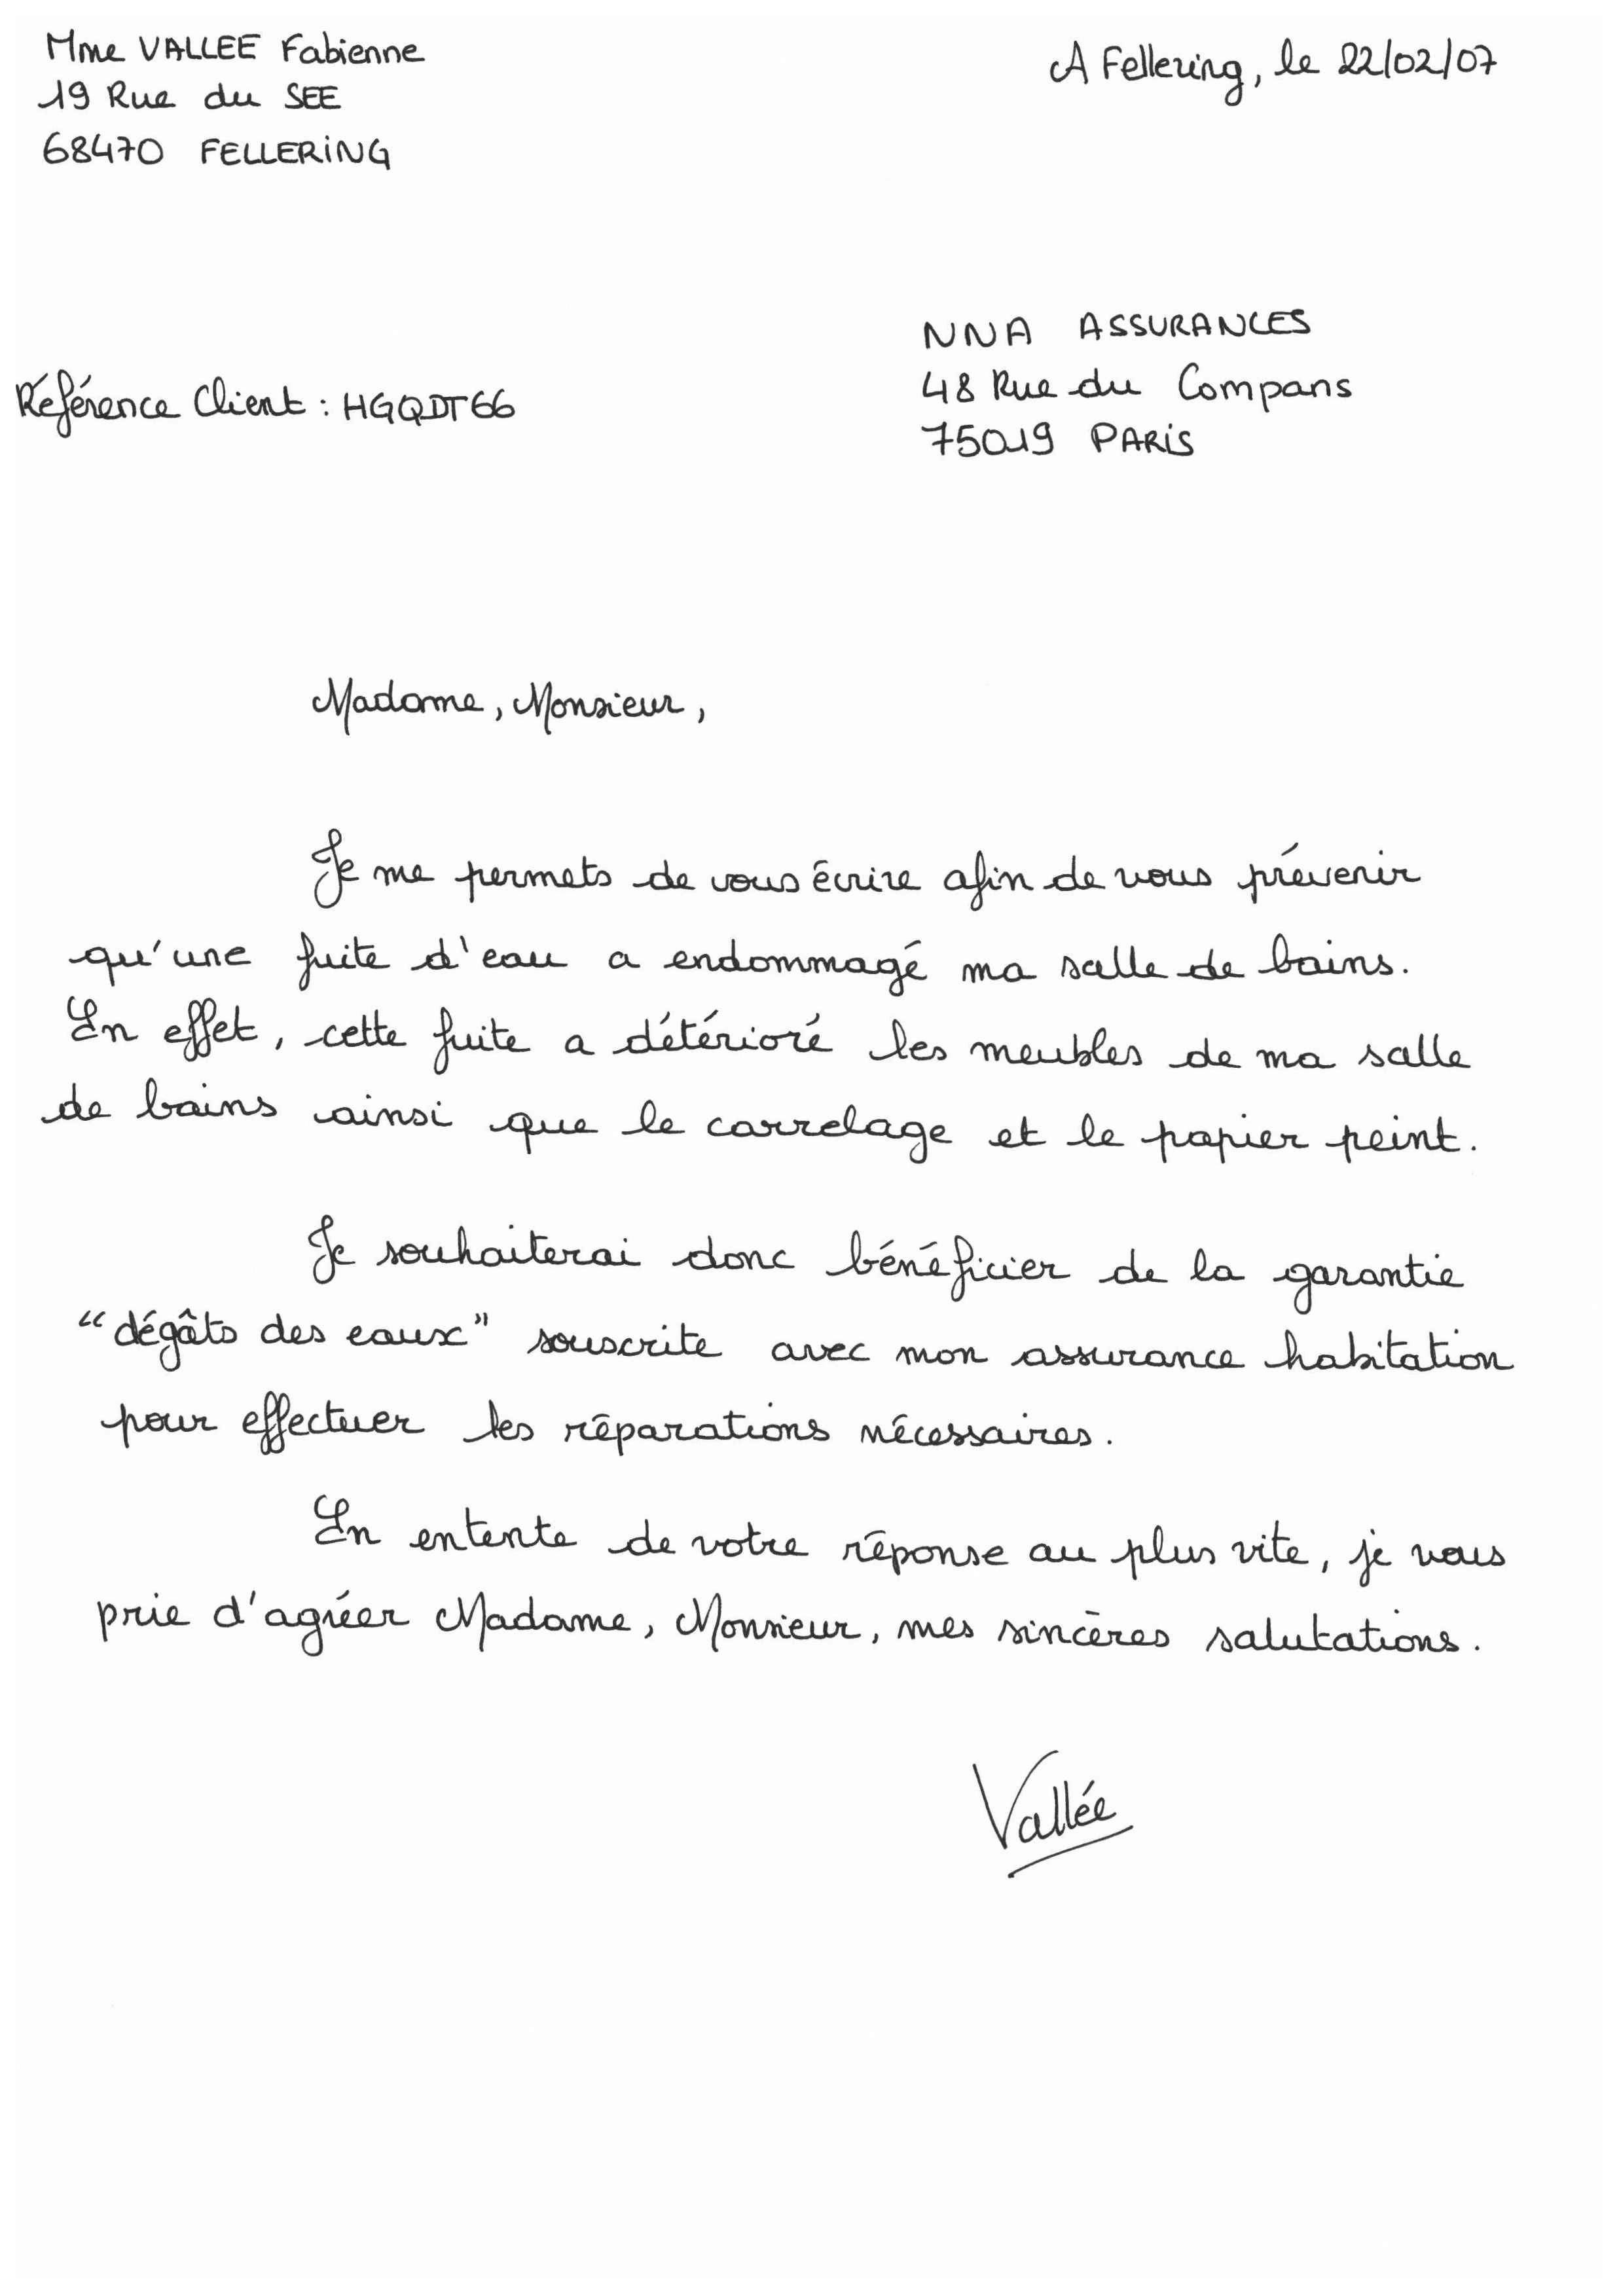 Mme VALLEE Fabienne
19 Rue du SEE
68470 FELLERING
A Fellering, le 22/02/07
NNA ASSURANCES
48 Rue du Compans
75019 PARIS
Référence Client : HGQDT66
Madame, Monsieur,
Je me permets de vous écrire afin de vous prévenir
qu'une fuite d'eau a endommagé ma salle de bains.
En effet, cette fuite a détérioré les meubles de ma salle
de bains ainsi que le carrelage et le papier peint.
Je souhaiterai donc bénéficier de la garantie
"dégâts des eaux" souscrite avec mon assurance habitation
pour effectuer les réparations nécessaires.
En entente de votre réponse au plus vite, je vous
prie d'agréer Madame, Monsieur, mes sincères salutations.
Vallée